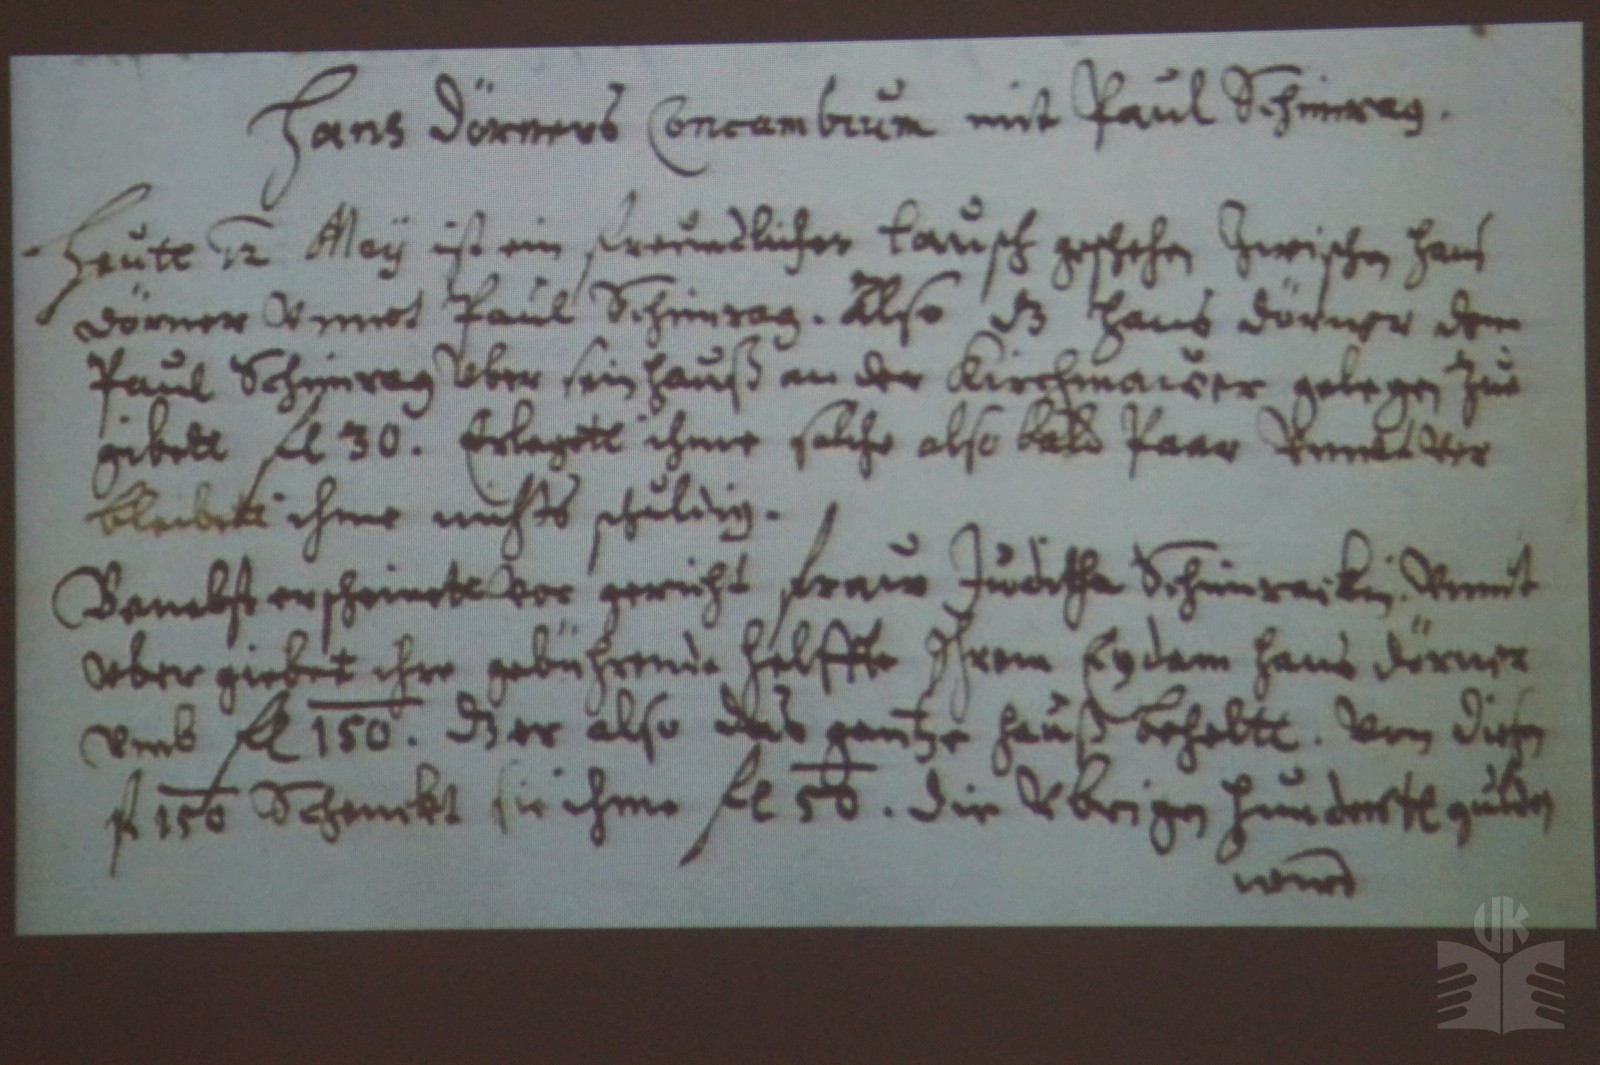 Hans Dörners Concambium mit Paul Schimrag.
Heutt 12 Maÿ ist ein freundlicher tausch geschehen Zwischen Hans
Dörner Vnnd Paul Schimrag. Also dz Hans Dörner dem
Paul Schimrag Vber sein Hauß an der Kirchmauer gelegen Zue
gibett fl 30. Erlegett ihme solche also bald Paar Vnndt Ver
bleibett ihme nichts schuldig.
Benebst erscheinett Vor gericht fraw Juditha Schimrackin. Vnndt
Vber giebet ihre gebührende helffte Ihrem Eydam Hans Dörner
Vmb fl 150. dz er also das gantze Hauß behelt. Von diesen
fl 150 Schenckt sie ihme fl 50. die Vbrigen hundertt gulden
wird
UK